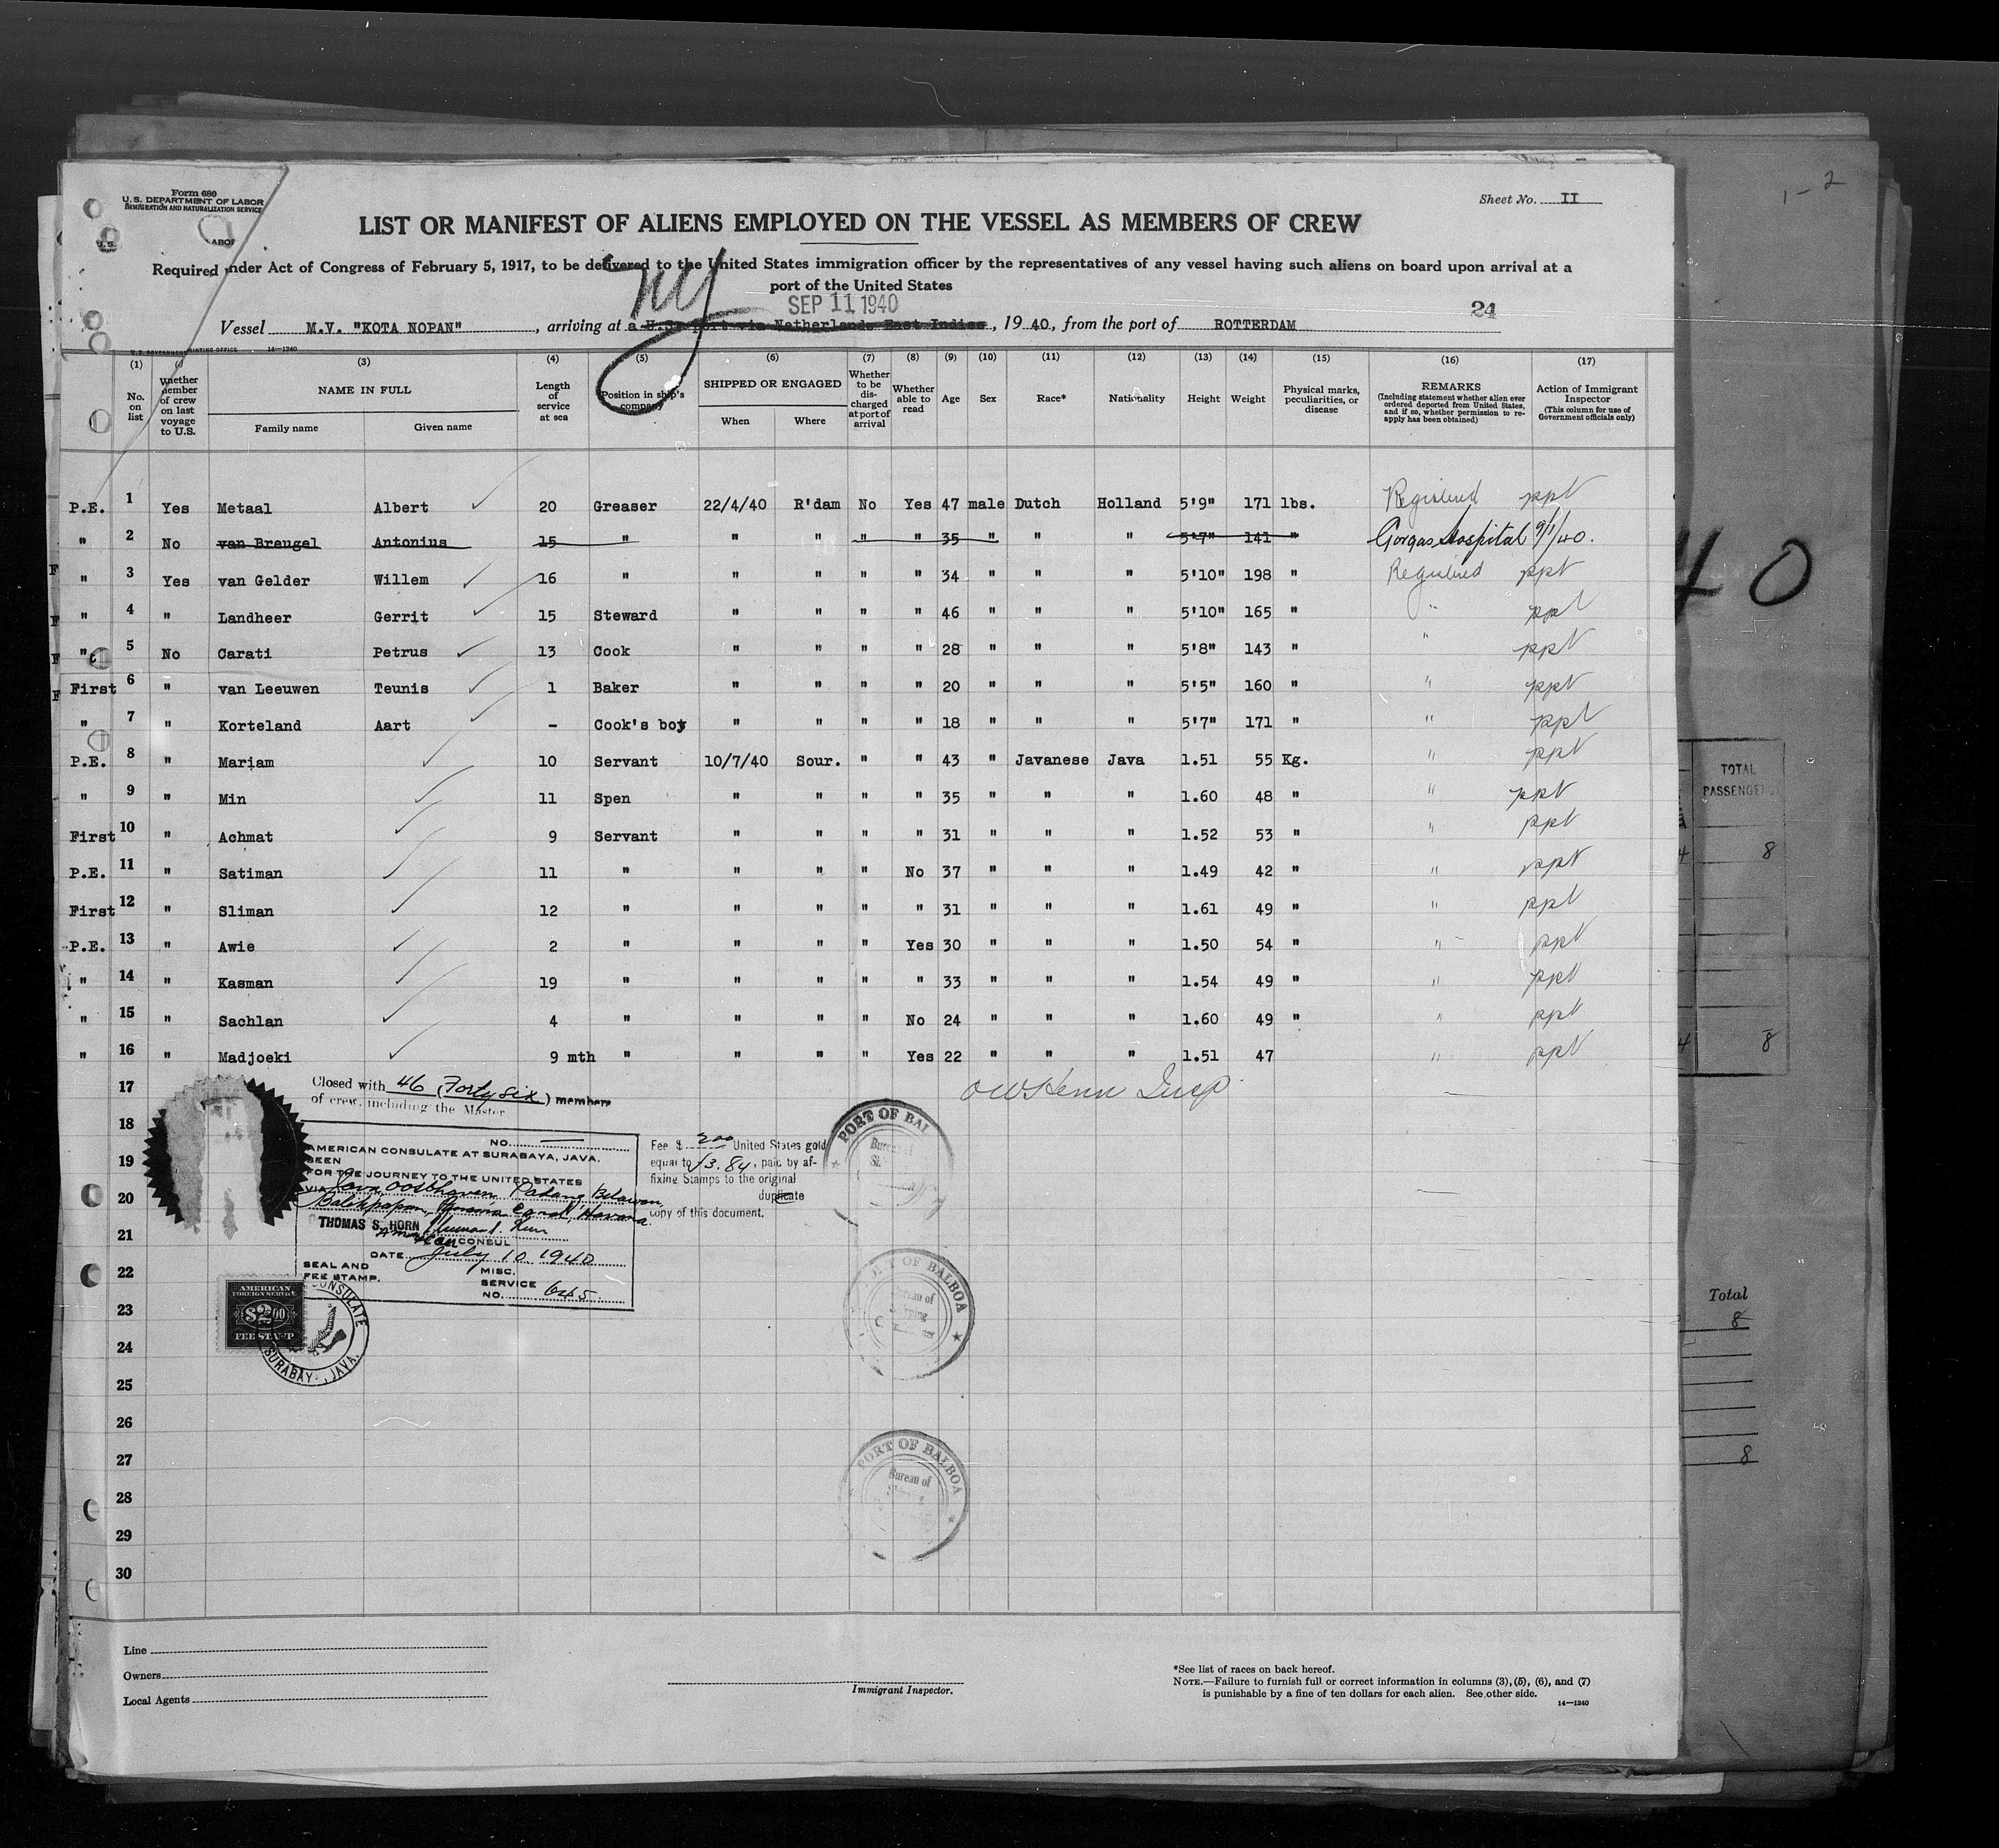 Form 680
U.S. DEPARTMENT OF LABOR
IMMIGRATION AND NATURALIZATION SERVICE
Sheet No. II
LIST OR MANIFEST OF ALIENS EMPLOYED ON THE VESSEL AS MEMBERS OF CREW
Required under Act of Congress of February 5, 1917, to be delivered to the United States immigration officer by the representatives of any vessel having such aliens on board upon arrival at a
port of the United States
NY
SEP 11 1940
24
Vessel M.V. "KOTA NOPAN", arriving at a U.S. port via Netherlands East Indies, 19 40, from the port of ROTTERDAM
U.S. GOVERNMENT PRINTING OFFICE 14—1240
(1) (3) (4) (5) (6) (7) (8) (9) (10) (11) (12) (13) (14) (15) (16) (17)
No. on list
Whether member of crew on last voyage to U.S.
NAME IN FULL
Family name Given name
Length of service at sea
Position in ship's company
SHIPPED OR ENGAGED
When Where
Whether to be discharged at port of arrival
Whether able to read
Age
Sex
Race*
Nationality
Height
Weight
Physical marks, peculiarities, or disease
REMARKS
(Including statement whether alien ever ordered deported from United States, and if so, whether permission to reapply has been obtained)
Action of Immigrant Inspector
(This column for use of Government officials only)
P.E. 1 Yes Metaal Albert 20 Greaser 22/4/40 R'dam No Yes 47 male Dutch Holland 5'9" 171 lbs. Registered ppt
" 2 No van Breugel Antonius 15 " " " " " 35 " " " 5'7" 141 " Gorgas Hospital 9/1/40.
" 3 Yes van Gelder Willem 16 " " " " " 34 " " " 5'10" 198 " Registered ppt
" 4 " Landheer Gerrit 15 Steward " " " " 46 " " " 5'10" 165 " " ppt
" 5 No Carati Petrus 13 Cook " " " " 28 " " " 5'8" 143 " " ppt
First 6 " van Leeuwen Teunis 1 Baker " " " " 20 " " " 5'5" 160 " " ppt
" 7 " Korteland Aart - Cook's boy " " " " 18 " " " 5'7" 171 " " ppt
P.E. 8 " Mariam 10 Servant 10/7/40 Sour. " " 43 " Javanese Java 1.51 55 Kg. " ppt
" 9 " Min 11 Spen " " " " 35 " " " 1.60 48 " " ppt
First 10 " Achmat 9 Servant " " " " 31 " " " 1.52 53 " " ppt
P.E. 11 " Satiman 11 " " " " No 37 " " " 1.49 42 " " ppt
First 12 " Sliman 12 " " " " " 31 " " " 1.61 49 " " ppt
P.E. 13 " Awie 2 " " " " Yes 30 " " " 1.50 54 " " ppt
" 14 " Kasman 19 " " " " " 33 " " " 1.54 49 " " ppt
" 15 " Sachlan 4 " " " " No 24 " " " 1.60 49 " " ppt
" 16 " Madjoeki 9 mth " " " " Yes 22 " " " 1.51 47 " ppt
17
18
19
20
21
22
23
24
25
26
27
28
29
30
Closed with 46 (Forty six) members
of crew, including the Master
NO.
AMERICAN CONSULATE AT SURABAYA, JAVA.
SEEN
FOR THE JOURNEY TO THE UNITED STATES
VIA Java, Oosthaven Padang Belawan,
Balikpapan, Panama Canal, Havana
THOMAS S. HORN
American CONSUL
DATE July 10 1940
SEAL AND
FEE STAMP.
MISC.
SERVICE
NO. 645.
Fee $ 2.00 United States gold
equal to f3.84, paid by af-
fixing Stamps to the original
duplicate
copy of this document.
AMERICAN
FOREIGN SERVICE
$2.00
FEE STAMP
CONSULATE
SURABAYA, JAVA.
PORT OF BAL
Bureau of
PORT OF BALBOA
Bureau of
Shipping
PORT OF BALBOA
Bureau of
Shipping
Line
Owners
Local Agents
Immigrant Inspector.
*See list of races on back hereof.
NOTE.—Failure to furnish full or correct information in columns (3), (5), (6), and (7)
is punishable by a fine of ten dollars for each alien. See other side.
14—1240
1-2
40
TOTAL
PASSENGE
8
8
Total
8
8